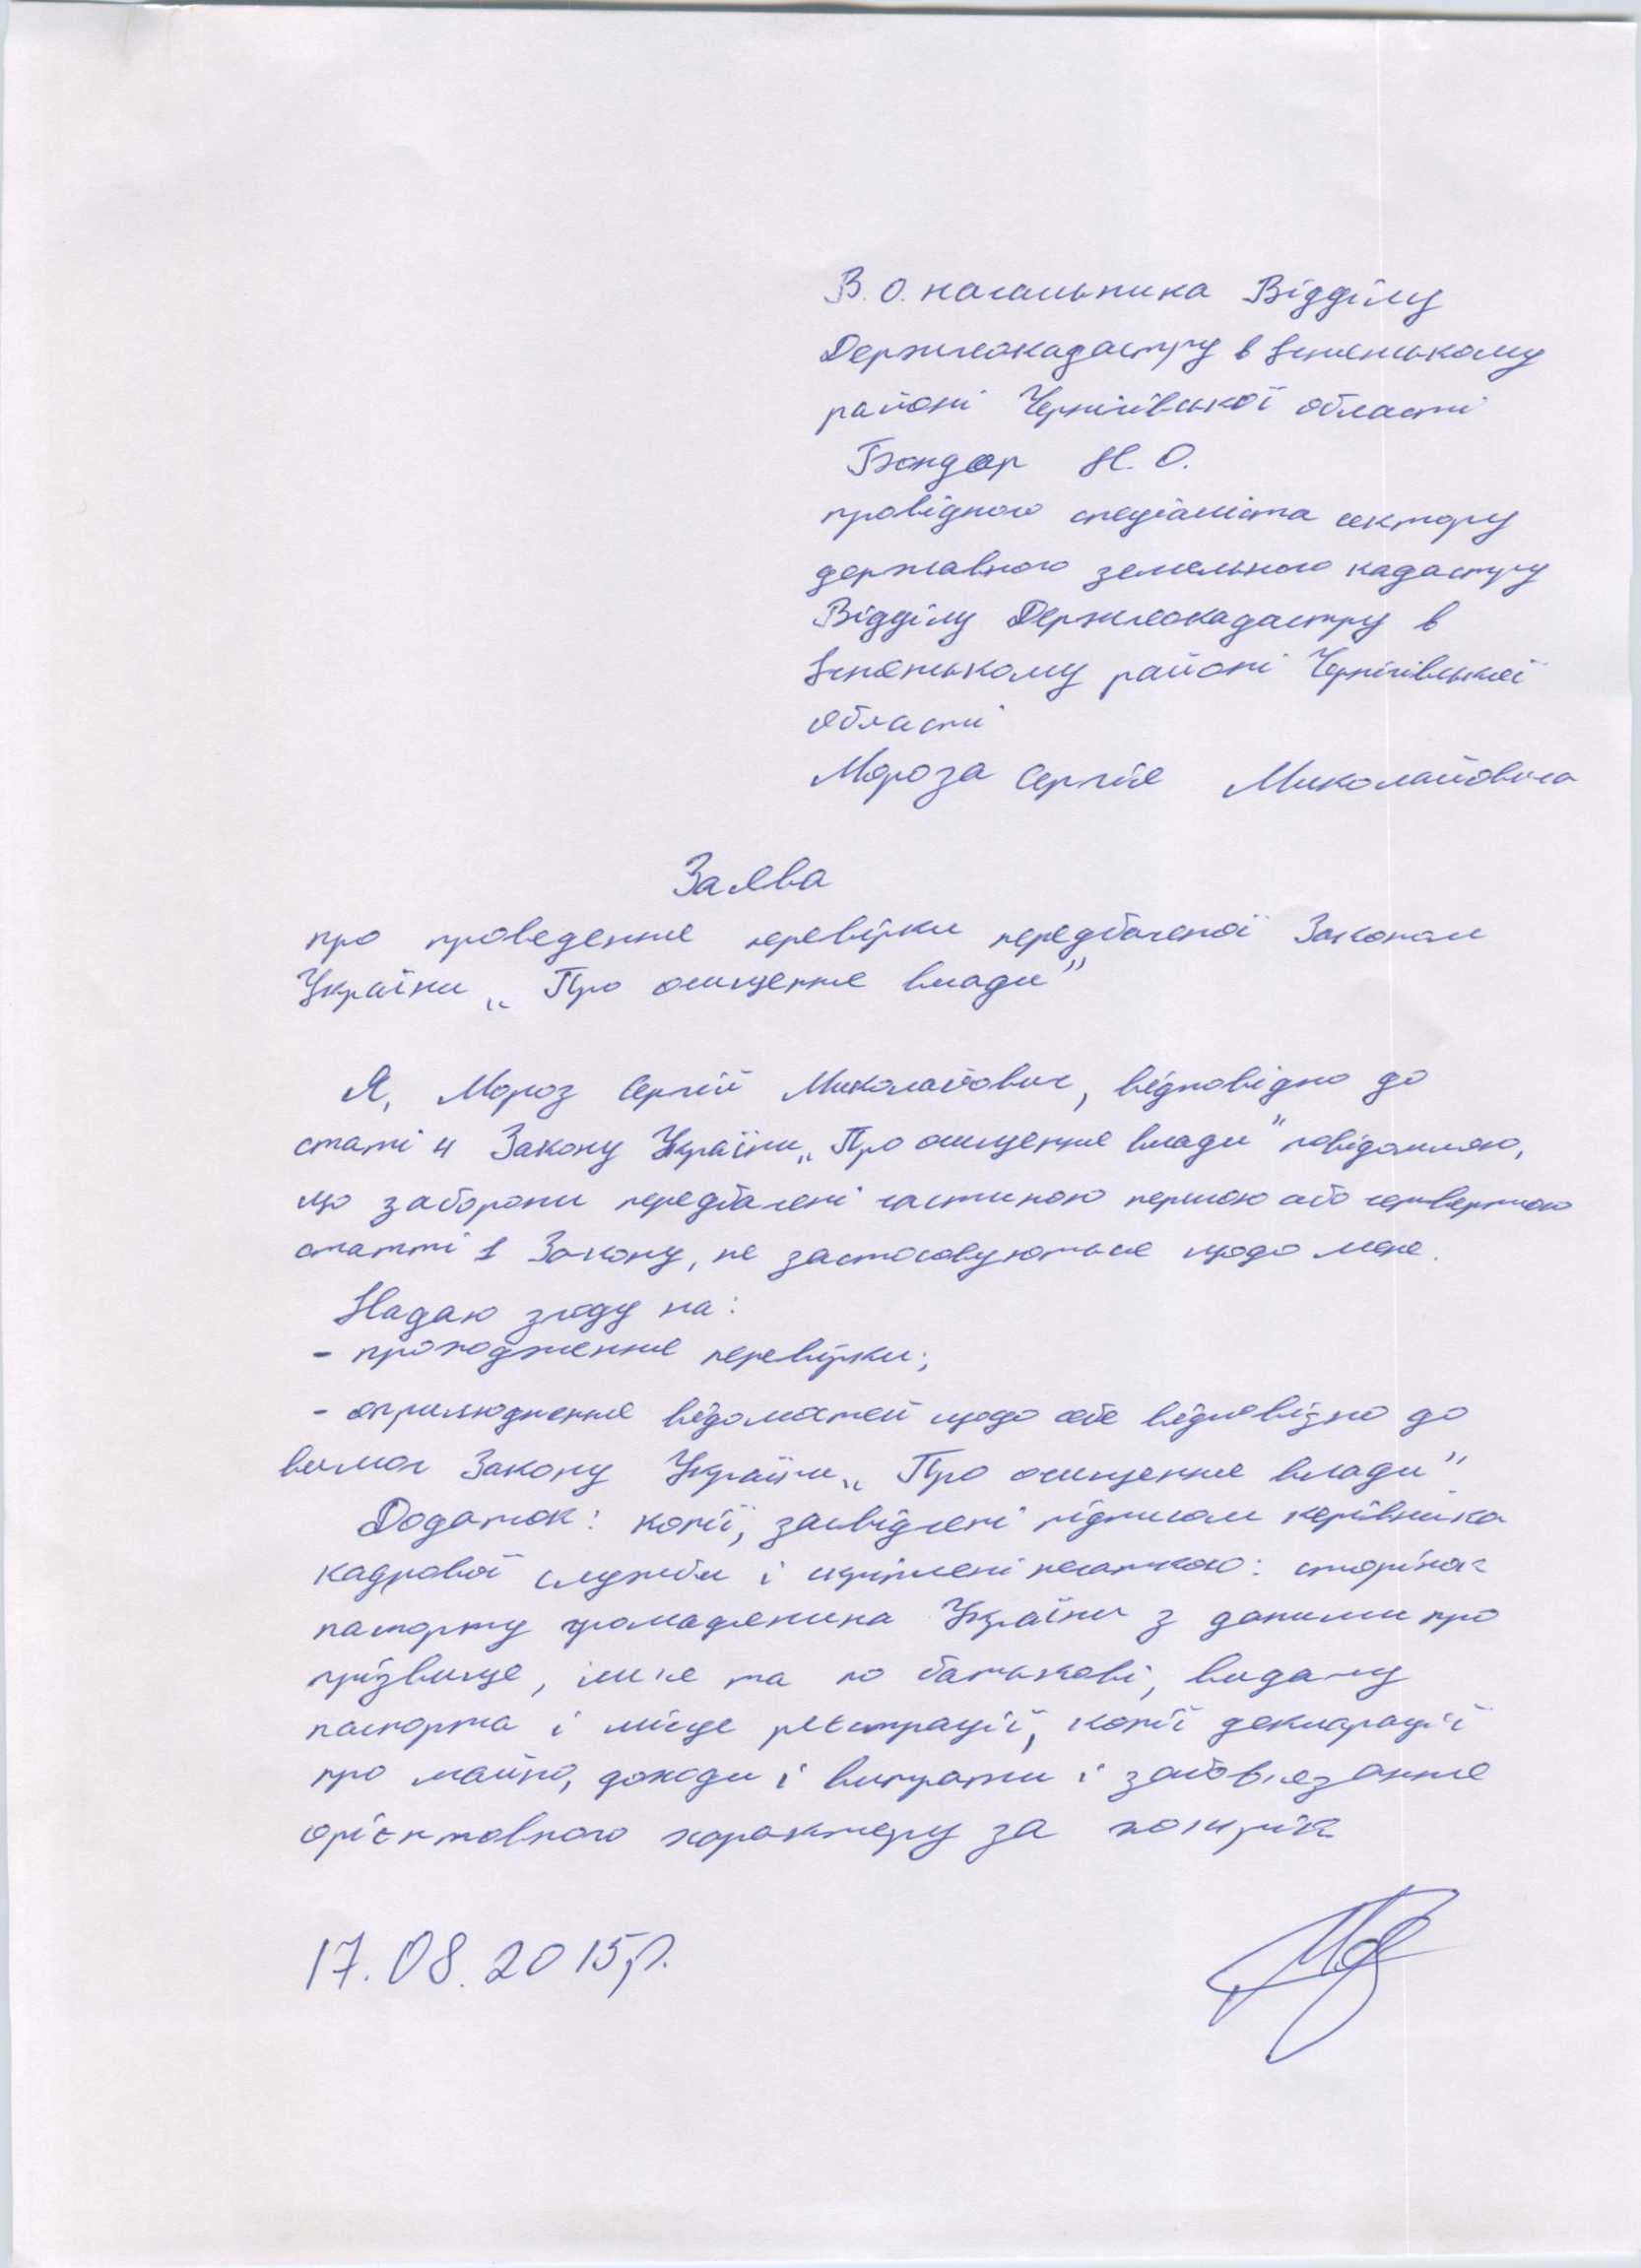 В.о. начальника Відділу
Держгеокадастру в Ічнянському
районі Чернігівської області
Бондар Н.О.
провідного спеціаліста сектору
державного земельного кадастру
Відділу Держгеокадастру в
Ічнянському районі Чернігівської
області
Мороза Сергія Миколайовича
Заява
про проведення перевірки передбаченої Законом
України „Про очищення влади”
Я, Мороз Сергій Миколайович, відповідно до
статі 4 Закону України „Про очищення влади” повідомляю,
що заборони передбачені частиною першою або четвертою
статті 1 Закону, не застосовуються щодо мене.
Надаю згоду на:
- проходження перевірки;
- оприлюднення відомостей щодо себе відповідно до
вимог Закону України „Про очищення влади”
Додаток: копії, засвідчені підписом керівника
кадрової служби і скріплені печаткою: сторінок
паспорту громадянина України з даними про
прізвище, ім'я та по батькові, видачу
паспорта і місце реєстрації, копії декларації
про майно, доходи і витрати і зобов'язання
за
17.08.2015р.